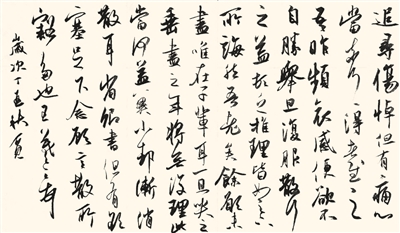 追尋傷悼但有痛心
當奈何得告慰之
吾昨頻哀感便欲不
自勝舉旦復服散行
之益頓乏推理皆如足下
所誨然吾老矣餘願未
盡唯在子輩耳一旦哭之
垂盡之年將無復理此
當何益冀小却漸消
散耳省卿書但有酸
塞足下念顧言散所
豁多也王羲之頓首
歲次丁亥秋